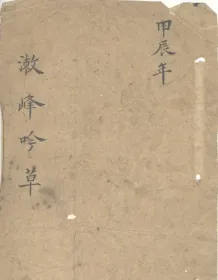 甲辰年
漱峰吟草